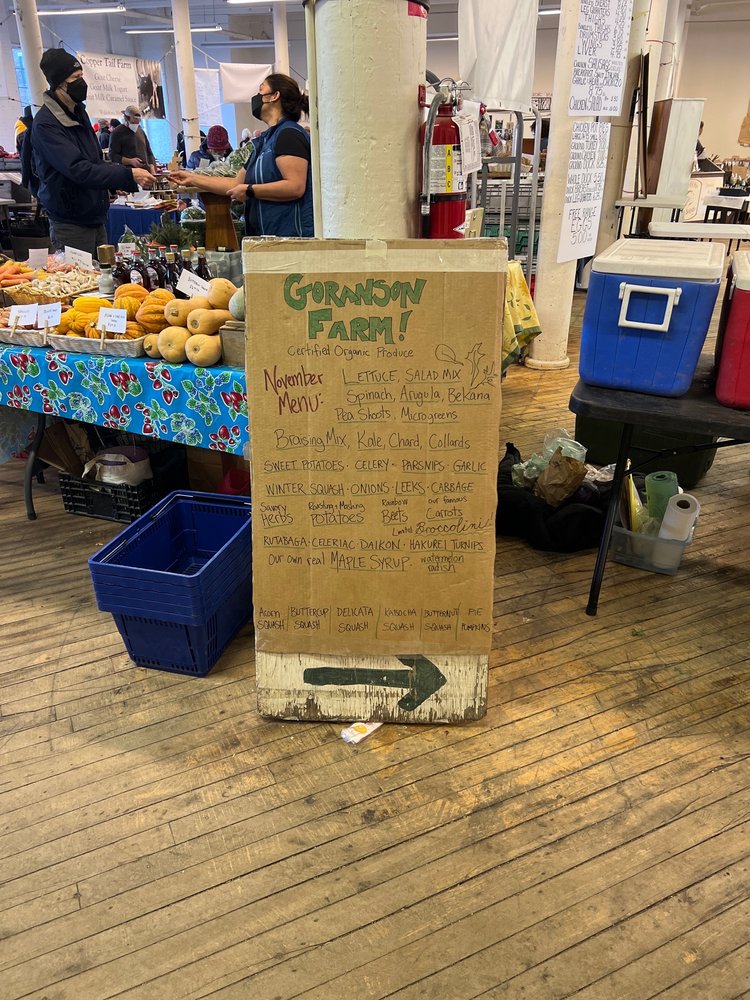 Copper Tail Farm
Goat Cheese
Goat Milk Yogurt
Goat Milk Caramel Sauce
GORANSON
FARM!
Certified Organic Produce
November
Menu:
LETTUCE, SALAD MIX
Spinach, Arugula, Bekana
Pea Shoots, Microgreens
Braising Mix, Kale, Chard, Collards
SWEET POTATOES · CELERY · PARSNIPS · GARLIC
WINTER SQUASH · ONIONS · LEEKS · CABBAGE
Savory Herbs
Roasting + Mashing POTATOES
Rainbow Beets
our famous Carrots
Limited Broccolini!
RUTABAGA · CELERIAC · DAIKON · HAKUREI TURNIPS
Our own real MAPLE SYRUP
watermelon radish
ACORN SQUASH
BUTTERCUP SQUASH
DELICATA SQUASH
KABOCHA SQUASH
BUTTERNUT SQUASH
PIE PUMPKINS
ABC
SAUSAGE
CHICKEN SALAD
CHICKEN POT PIES
WHOLE DUCK
FREE RANGE
EGGS
5.00